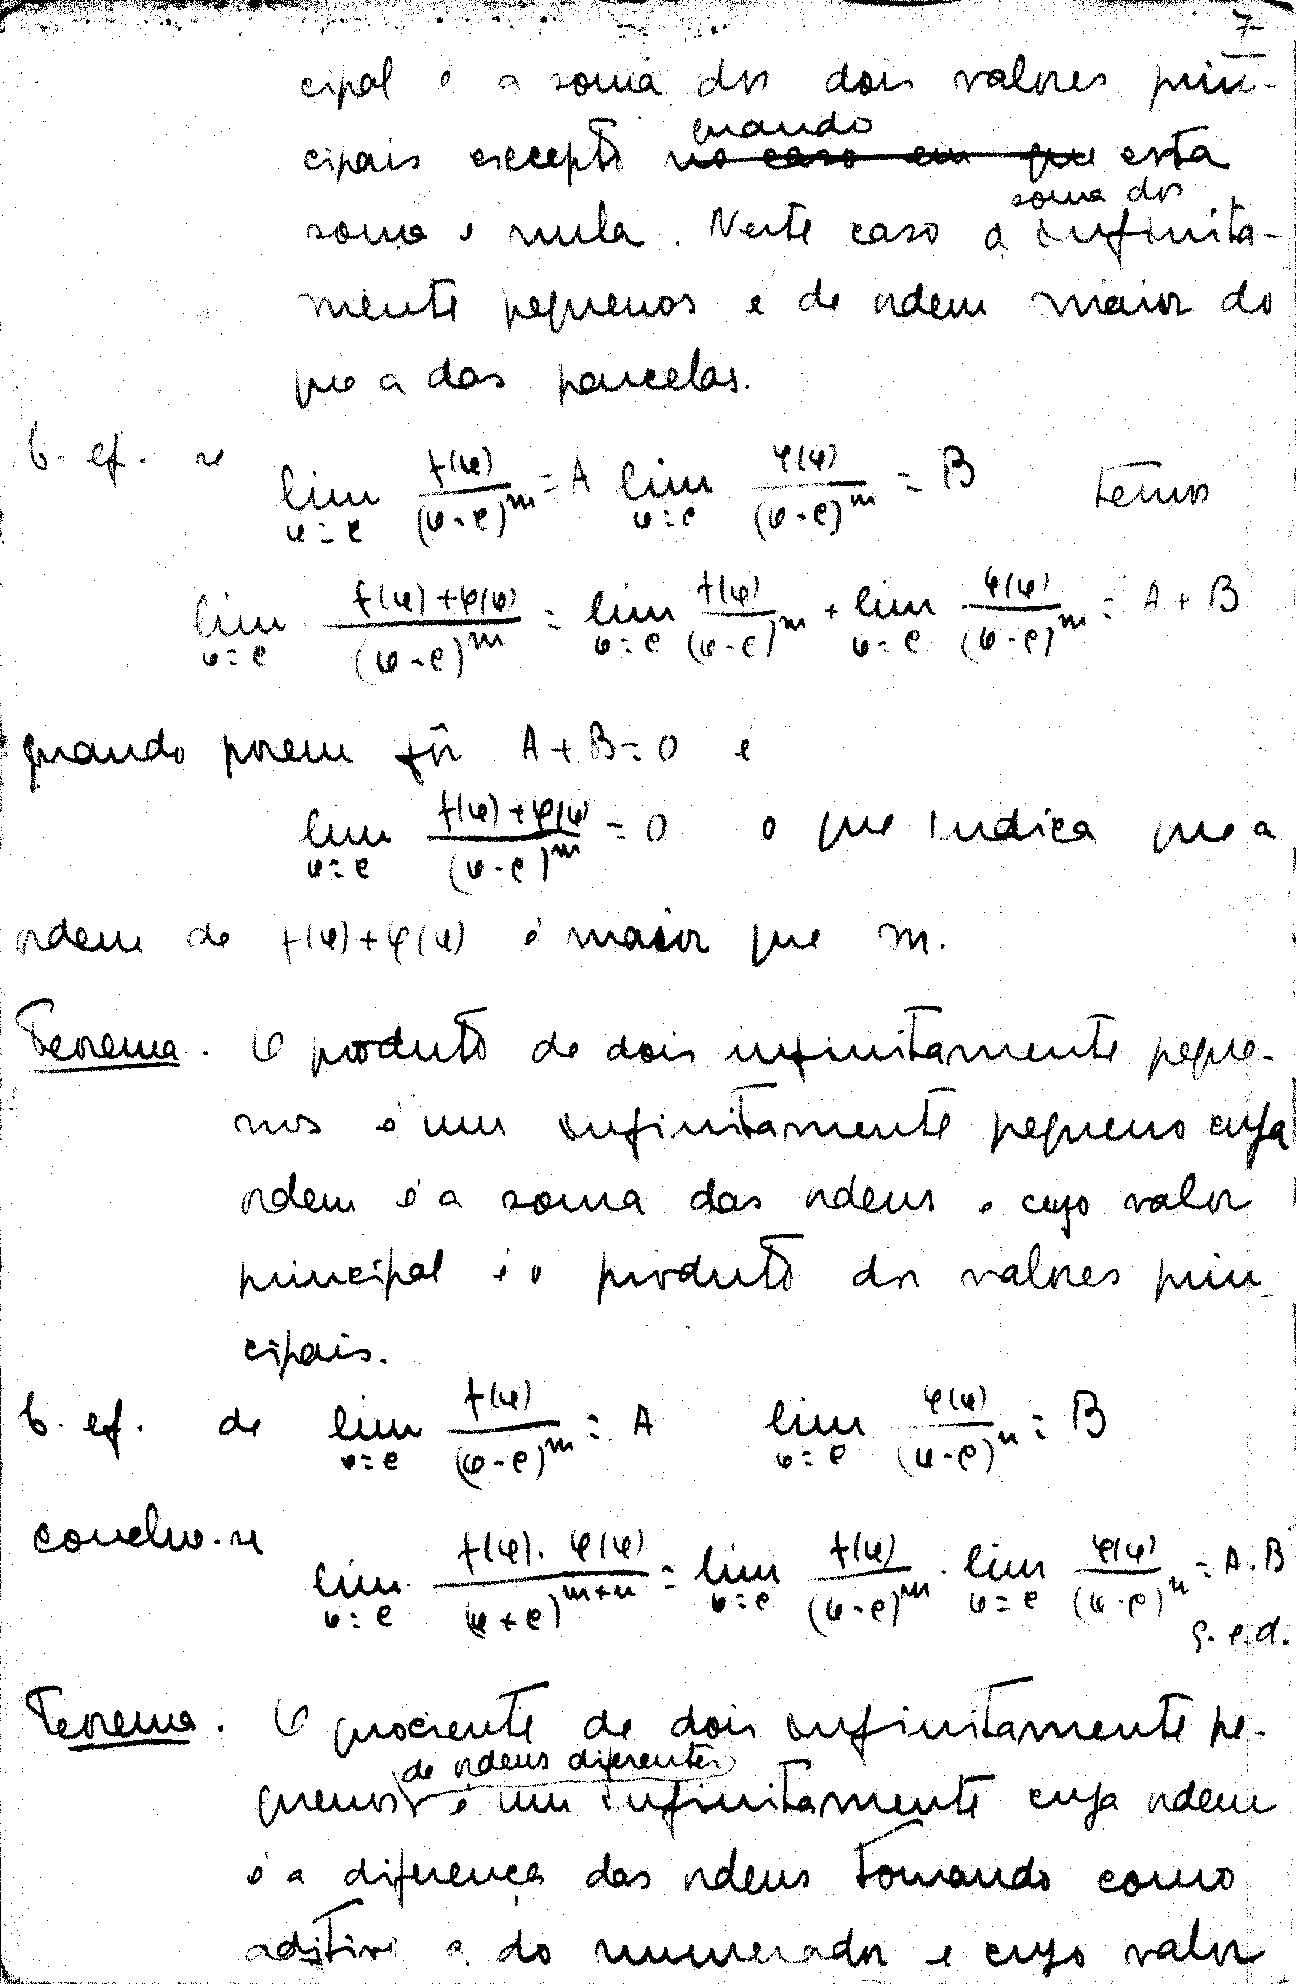 7
cipal é a soma dos dois valores prin-
quando
cipais excepto no caso em que esta
soma dos
soma é nula. Neste caso a infinita-
mente pequenos é de ordem maior do
que a das parcelas.
C. ef. se lim_{φ=e} f(φ)/(φ-e)^m = A lim_{φ=e} φ(φ)/(φ-e)^m = B temos
lim_{φ=e} f(φ)+φ(φ)/(φ-e)^m = lim_{φ=e} f(φ)/(φ-e)^m + lim_{φ=e} φ(φ)/(φ-e)^m = A + B
quando porem fôr A+B=0 é
lim_{φ=e} f(φ)+φ(φ)/(φ-e)^m = 0 o que indica que a
ordem de f(φ)+φ(φ) é maior que m.
Teorema. O produto de dois infinitamente peque-
nos é um infinitamente pequeno cuja
ordem é a soma das ordens e cujo valor
principal é o produto dos valores prin
cipais.
C. ef. de lim_{φ=e} f(φ)/(φ-e)^m = A lim_{φ=e} φ(φ)/(φ-e)^n = B
conclue-se
lim_{φ=e} f(φ). φ(φ)/(φ+e)^{m+n} = lim_{φ=e} f(φ)/(φ-e)^m . lim_{φ=e} φ(φ)/(φ-e)^n = A.B
q.e.d.
Teorema. O quociente de dois infinitamente pe-
de ordens diferentes
quenos é um infinitamente cuja ordem
é a diferença das ordens tomando como
aditivo a do numerador e cujo valor